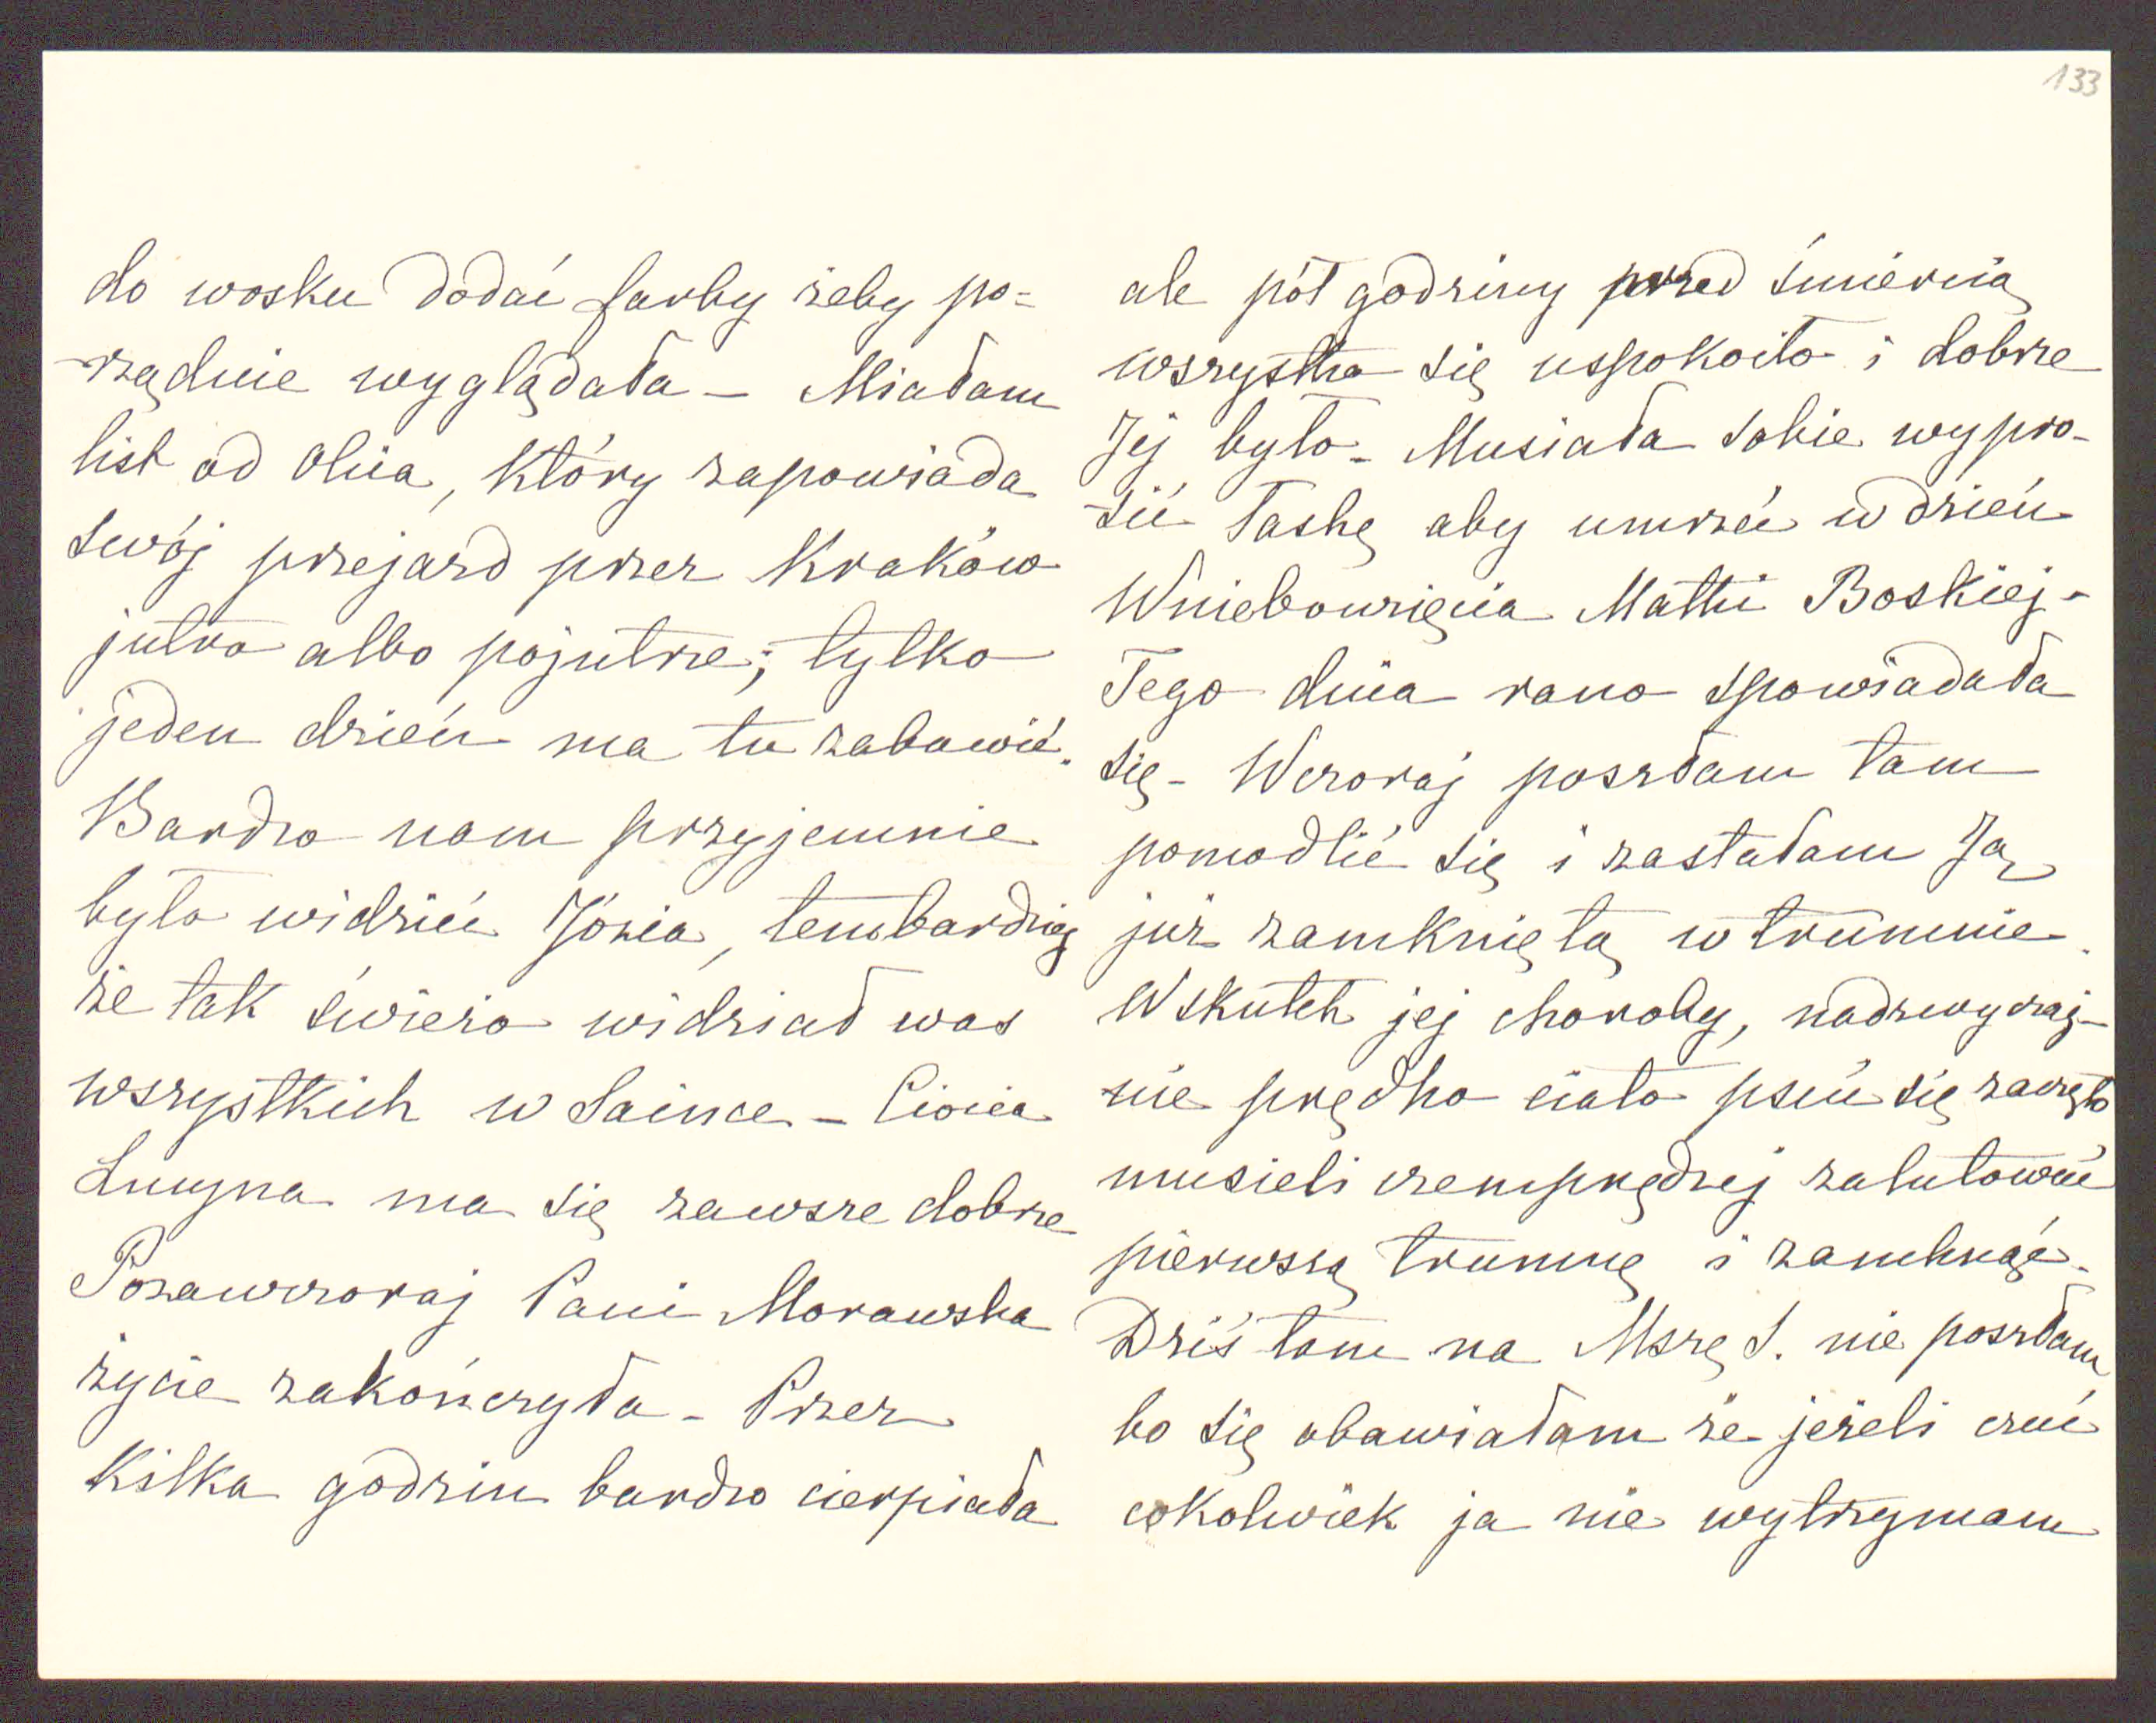 133
do wosku dodać farby żeby po=
-rządnie wyglądała – Miałam
list od Olcia, który zapowiada
swój przejazd przez Kraków
jutro albo pojutrze; tylko
jeden dzień ma tu zabawić.
Bardzo nam przyjemnie
było widzieć Józia, tembardziej
że tak świeżo widział was
wszystkich w Saince – Ciocia
Lucyna ma się zawsze dobrze
Pozawczoraj Pani Morawska
życie zakończyła – Przez
kilka godzin bardzo cierpiała
ale pół godziny przed śmiercią
wszystko się uspokoiło i dobrze
Jej było – Musiała sobie wypro-
-sić łaskę aby umrzeć w dzień
Wniebowzięcia Matki Boskiej –
Tego dnia rano spowiadała
się – Wczoraj poszłam tam
pomodlić się i zastałam Ją
już zamkniętą w trumnie.
Wskutek jej choroby, nadzwyczaj-
-nie prędko ciało psuć się zaczęło
musieli czemprędzej zalutować
pierwszą trumnę i zamknąć –
Dziś tam na Mszę S. nie poszłam
bo się obawiałam że jeżeli czuć
cokolwiek ja nie wytrzymam